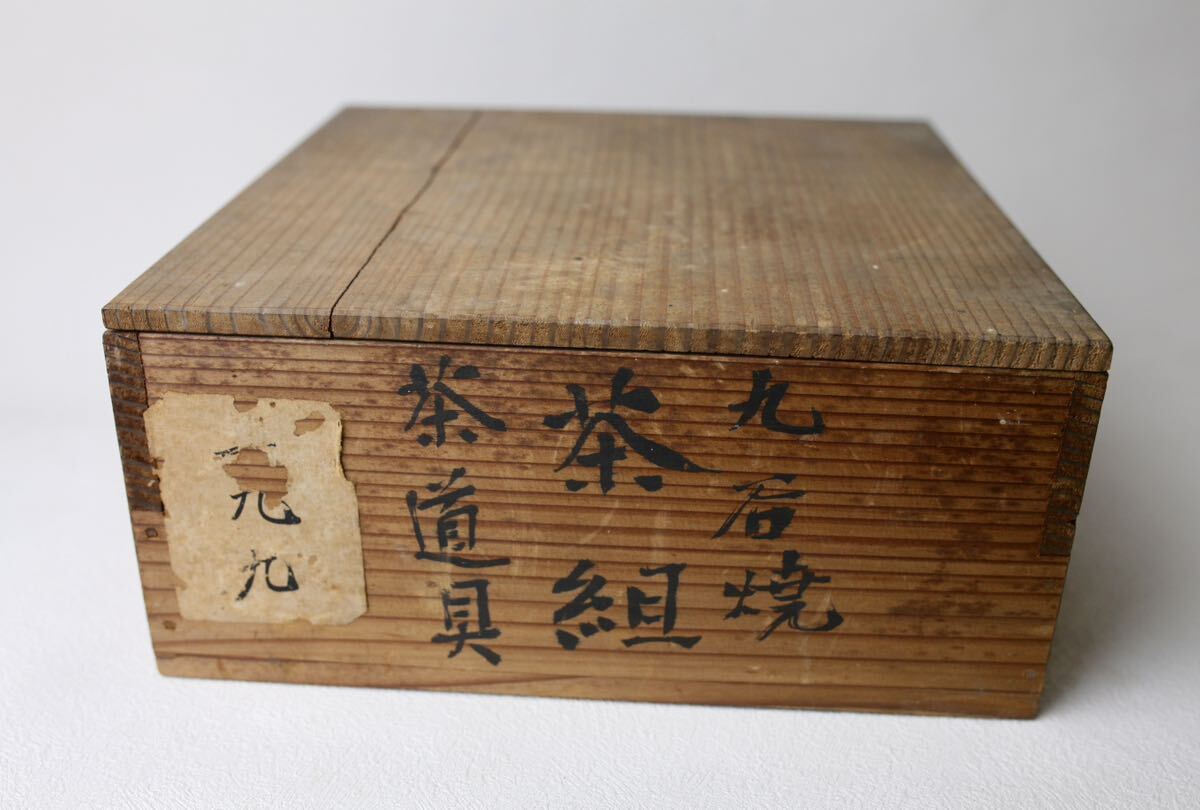 九石焼
茶組
茶道具
九九